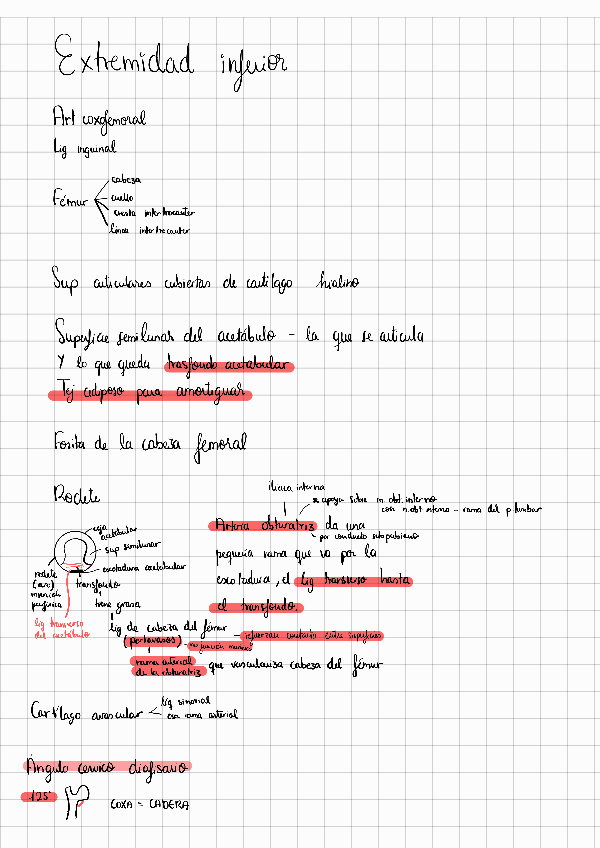 Extremidad inferior
Art coxofemoral
Lig inguinal
Fémur
cabeza
cuello
cresta intertrocanter
línea intertrocanter
Sup articulares cubiertas de cartílago hialino
Superficie semilunar del acetábulo - la que se articula
Y lo que queda trasfondo acetabular
Tej adiposo para amortiguar
Fosita de la cabeza femoral
Rodete
ceja
acetabular
sup semilunar
escotadura acetabular
rodete
transfondo
tiene grasa
lig transverso
del acetábulo
iliaca interna
se apoya sobre m. obt. interno
con n. obt interno - rama del p lumbar
Arteria obturatriz da una
por conducto subpubiano
pequeña rama que va por la
escotadura, el lig transverso hasta
el transfondo.
lig de cabeza del fémur
(portavasos) - no función mecánica
refuerzan contacto entre superficies
rama arterial
de la obturatriz que vasculariza cabeza del fémur
Cartílago avascular
liq sinovial
esa rama arterial
Angulo cervico diafisario
125°
COXA = CADERA